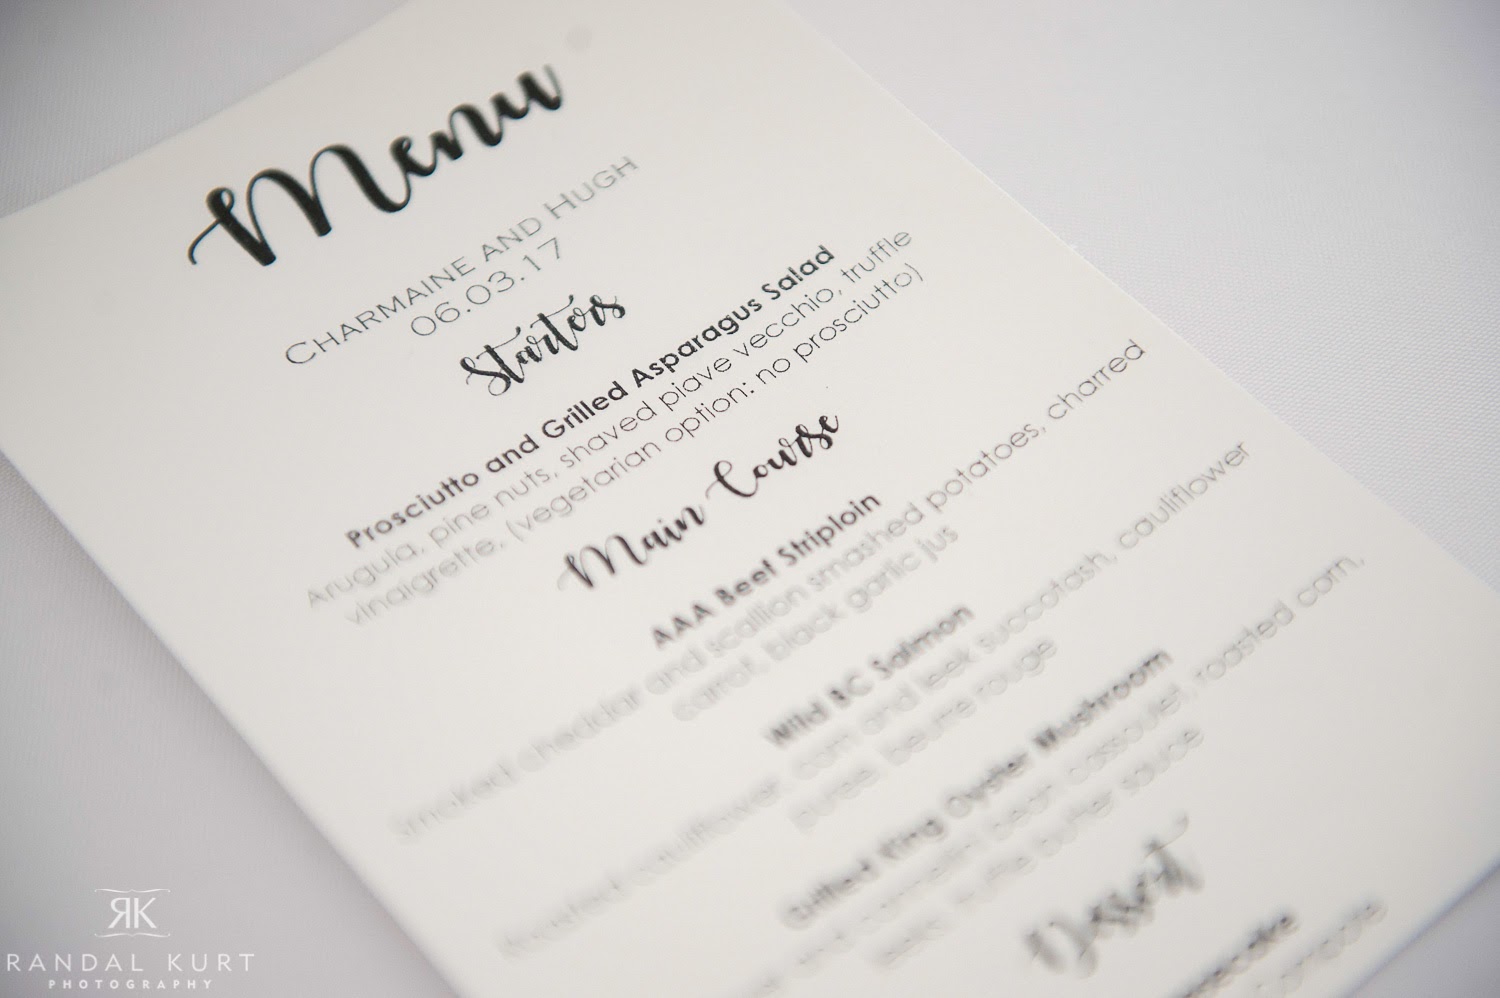 Menu
CHARMAINE AND HUGH
06.03.17
Starters
Prosciutto and Grilled Asparagus Salad
Arugula, pine nuts, shaved piave vecchio, truffle
vinaigrette, (vegetarian option: no prosciutto)
Main Course
AAA Beef Striploin
smoked cheddar and scallion smashed potatoes, charred
carrot, black garlic jus
Wild BC Salmon
roasted cauliflower, corn and leek succotash, cauliflower
puree, beurre rouge
Grilled King Oyster Mushroom
and cannellini bean cassoulet, roasted corn,
leek, white butter sauce
Dessert
RK
RANDAL KURT
PHOTOGRAPHY